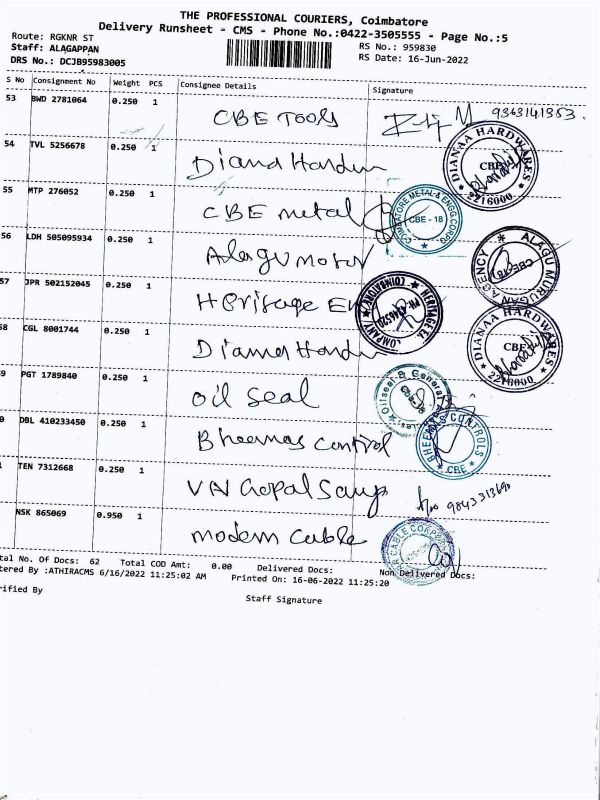 THE PROFESSIONAL COURIERS, Coimbatore
Delivery Runsheet - CMS - Phone No.:0422-3505555 - Page No.:5
Route: RGKNR ST
RS No.: 959830
Staff: ALAGAPPAN
RS Date: 16-Jun-2022
DRS No.: DCJB95983005
S No Consignment No Weight PCS Consignee Details Signature
53 BWD 2781064 0.250 1 CBE Tools 9363141353.
54 TVL 5256678 0.250 1 Diana Hardw
DIANAA HARDWARES CBE 2216000
55 MTP 276052 0.250 1 CBE metal
COIMBATORE METAL & ENGG.CORPO CBE - 18
56 LDH 505095934 0.250 1 Alagu motor
ALAGU MURUGAN AGENCY CBE-18
57 JPR 502152045 0.250 1 Heritage En
HERITAGE E. COMPANY COIMBATORE
58 CGL 8001744 0.250 1 Diana Hardw
DIANAA HARDWARES CBE 2216000
9 PGT 1789840 0.250 1 oil seal
Oilseal & General
0 DBL 410233450 0.250 1 Bheemas control
BHEEMAS CONTROLS CBE
TEN 7312668 0.250 1 VN Gopal Samy
NSK 865069 0.950 1 modern cable
CABLE CORPOR
tal No. Of Docs: 62 Total COD Amt: 0.00 Delivered Docs: Non Delivered Docs:
tered By :ATHIRACMS 6/16/2022 11:25:02 AM Printed On: 16-06-2022 11:25:20
rified By
Staff Signature